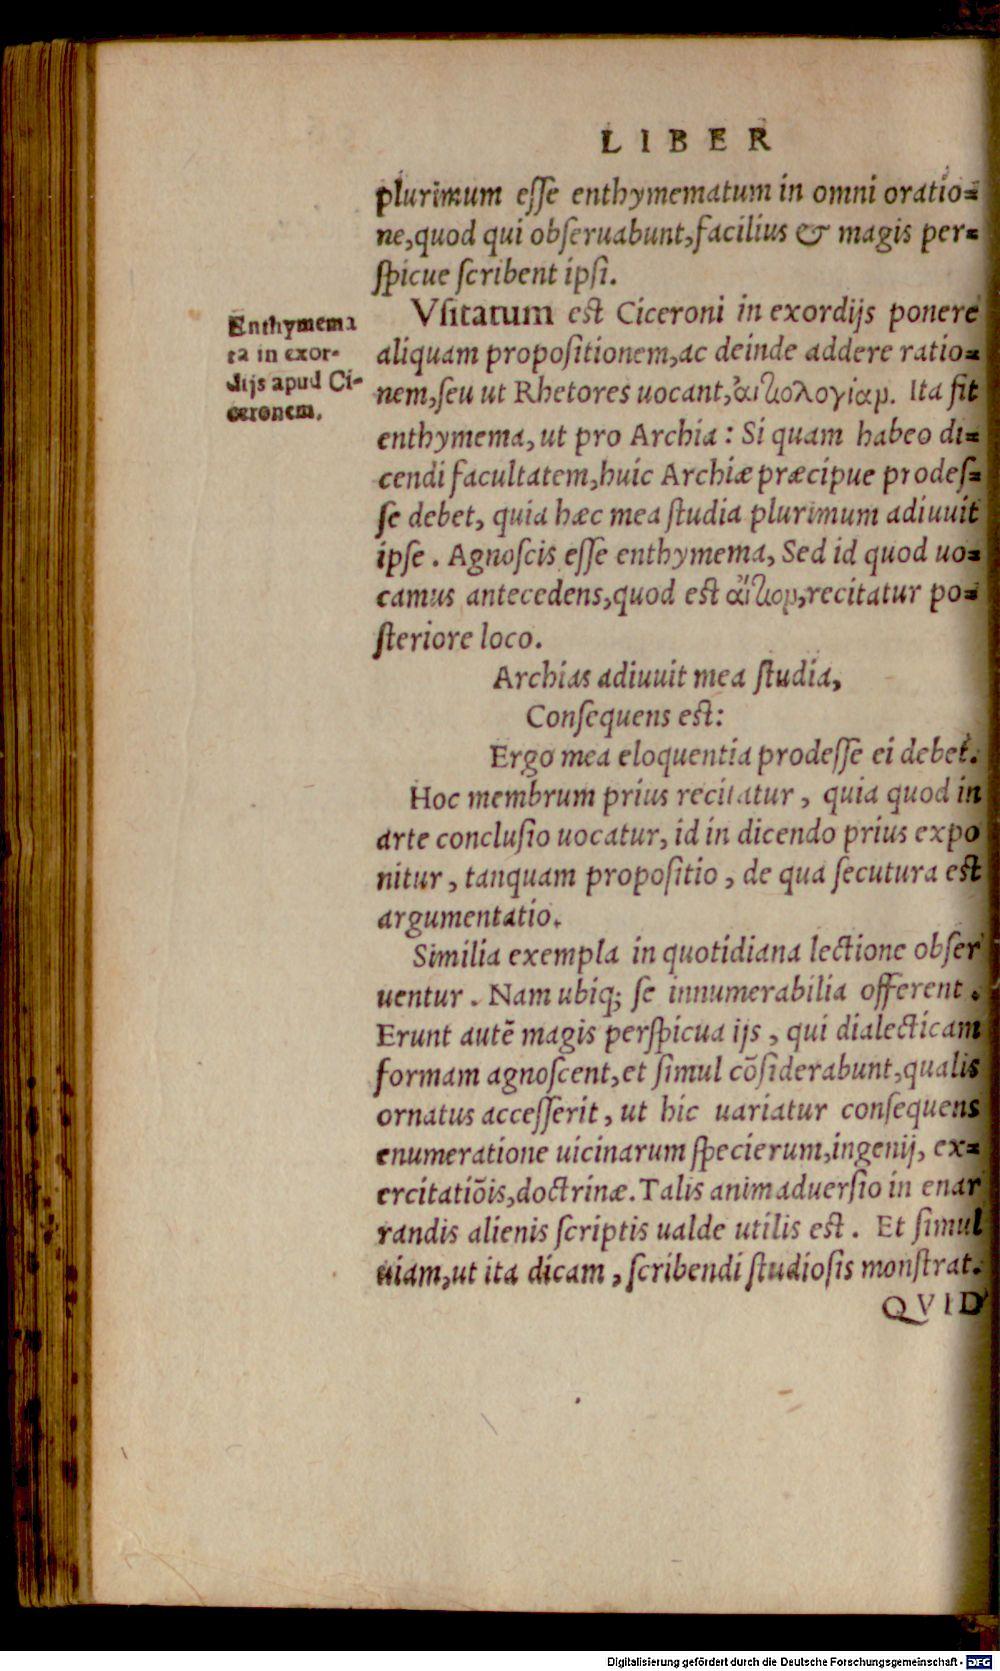 LIBER
plurimum esse enthymematum in omni oratio=
ne, quod qui obseruabunt, facilius & magis per=
spicue scribent ipsi.
Vsitatum est Ciceroni in exordijs ponere
aliquam propositionem, ac deinde addere ratio=
nem, seu ut Rhetores uocant, ἀιτιολογίαν. Ita fit
enthymema, ut pro Archia: Si quam habeo di=
cendi facultatem, huic Archiæ præcipue prodes=
se debet, quia hæc mea studia plurimum adiuuit
ipse. Agnoscis esse enthymema, Sed id quod uo=
camus antecedens, quod est ἄιτιον, recitatur po=
steriore loco.
Archias adiuuit mea studia,
Consequens est:
Ergo mea eloquentia prodesse ei debet.
Hoc membrum prius recitatur, quia quod in
arte conclusio uocatur, id in dicendo prius expo
nitur, tanquam propositio, de qua secutura est
argumentatio.
Similia exempla in quotidiana lectione obser
uentur. Nam ubiq; se innumerabilia offerent.
Erunt autẽ magis perspicua ijs, qui dialecticam
formam agnoscent, et simul cõsiderabunt, qualis
ornatus accesserit, ut hic uariatur consequens
enumeratione uicinarum specierum, ingenij, ex=
ercitatiõis, doctrinæ. Talis animaduersio in enar
randis alienis scriptis ualde utilis est. Et simul
uiam, ut ita dicam, scribendi studiosis monstrat.
QVID
Enthymema
ta in exor-
dijs apud Ci-
ceronem.
Digitalisierung gefördert durch die Deutsche Forschungsgemeinschaft - DFG